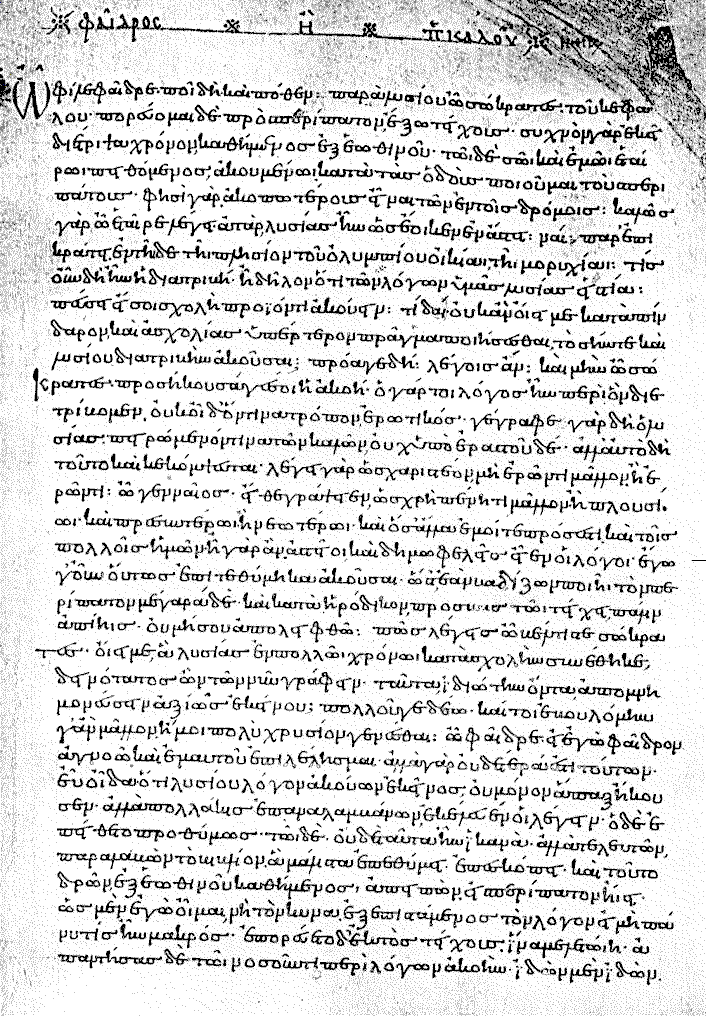 φαῖδρος ἢ π καλοῦ ἠθικ
Ὦ φίλε φαῖδρε ποῖ δὴ καὶ πόθεν: παρὰ λυσίου ὦ σώκρατες τοῦ κεφά
λου· πορεύομαι δὲ πρὸς περίπατον ἔξω τείχους· συχνὸν γὰρ ἐκεῖ
διέτριψα χρόνον, καθήμενος ἐξ ἑωθινοῦ· τῶι δὲ σῶι καὶ ἐμῶι ἑταί
ρωι πειθόμενος ἀκουμενῶι, κατὰ τὰς ὁδοὺς ποιοῦμαι τοὺς περι
πάτους· φησὶ γὰρ ἀκοπωτέρους εἶναι τῶν ἐν τοῖς δρόμοις: καλῶς
γὰρ ὦ ἑταῖρε λέγει, ἀτὰρ λυσίας ἦν ὡς ἔοικεν ἐν ἄστει: ναί· παρ' ἐπι
κράτει, ἐν τῆδε τῆι πλησίον τοῦ ὀλυμπίου οἰκίαι τῆι μορυχίαι: τίς
οὖν δὴ ἦν ἡ διατριβή· ἢ δῆλον ὅτι τῶν λόγων ὑμᾶς λυσίας εἱστία:
πεύσει εἴ σοι σχολὴ προϊόντι ἀκούειν: τί δαί; οὐκ ἂν οἴει με κατὰ πίν
δαρον, καὶ ἀσχολίας ὑπέρτερον πρᾶγμα ποιήσεσθαι, τὸ σήν τε καὶ
λυσίου διατριβὴν ἀκοῦσαι; πρόαγε δή: λέγοις ἄν: καὶ μὴν ὦ σώ
κρατες προσήκουσά γέ σοι ἡ ἀκοή· ὁ γάρ τοι λόγος ἦν περὶ ὃν διε
τρίβομεν, οὐκ οἶδ' ὅντινα τρόπον, ἐρωτικός· γέγραφε γὰρ δὴ ὁ λυ
σίας πειρώμενόν τινα τῶν καλῶν, οὐχ ὑπ' ἐραστοῦ δέ· ἀλλ' αὐτὸ δὴ
τοῦτο καὶ κεκόμψευται· λέγει γὰρ ὡς χαριστέον, μὴ ἐρῶντι μᾶλλον, ἢ ἐ
ρῶντι: ὦ γενναῖος· εἴθε γράψειεν, ὡς χρὴ πένητι μᾶλλον, ἢ πλουσί
ωι· καὶ πρεσβυτέρωι ἢ νεωτέρωι· καὶ ὅσα ἄλλα ἐμοί τε πρόσεστι καὶ τοῖς
πολλοῖς ἡμῶν, ἦ γὰρ ἂν ἀστεῖοι καὶ δημωφελεῖς εἶεν οἱ λόγοι· ἔγω
γ' οὖν οὕτως ἐπιτεθύμηκα ἀκοῦσαι· ὥστ' ἐὰν βαδίζων ποιῆι τὸν πε
ρίπατον μέγαράδε· καὶ κατὰ ἡρόδικον, προσβὰς τῶι τείχει, πάλιν
ἀπίηις· οὐ μή σου ἀπολειφθῶ: πῶς λέγεις ὦ βέλτιστε σώκρα
τες· οἴει με, ἃ λυσίας ἐν πολλῶι χρόνωι κατὰ σχολὴν συνέθηκε,
δεινότατος ὢν τῶν νῦν γράφειν· ταῦτα ἰδιώτην ὄντα ἀπομνη
μονεύσειν ἀξίως ἐκείνου; πολλοῦ γε δέω· καί τοι ἐβουλόμην
γ' ἂν μᾶλλον ἤ μοι πολὺ χρυσίον γενέσθαι: ὦ φαῖδρε, εἰ ἐγὼ φαῖδρον
ἀγνοῶ, καὶ ἐμαυτοῦ ἐπιλέλησμαι· ἀλλὰ γὰρ οὐδέτερά ἐστι τούτων·
εὖ οἶδα ὅτι λυσίου λόγον ἀκούων ἐκεῖνος, οὐ μόνον ἅπαξ ἤκου
σεν· ἀλλὰ πολλάκις ἐπαναλαμβάνων ἐκέλευέν οἱ λέγειν· ὁ δὲ ἐ
πείθετο προθύμως· τῶι δὲ, οὐδὲ ταῦτα ἦν ἱκανά· ἀλλὰ τελευτῶν,
παραλαβὼν τὸ βιβλίον, ἃ μάλιστα ἐπεθύμει· ἐπεσκόπει· καὶ τοῦτο
δρῶν, ἐξ ἑωθινοῦ καθήμενος, ἀπειπὼν, εἰς περίπατον ἤιει·
ὡς μὲν ἐγὼ οἶμαι, νὴ τὸν κύνα, ἐξεπιστάμενος τὸν λόγον, εἰ μὴ πάνυ
τις ἦν μακρός· ἐπορεύετο δ' ἐκτὸς τείχους, ἵνα μελετώιη· ἀ
παντήσας δὲ τῶι νοσοῦντι περὶ λόγων ἀκοὴν· ἰδὼν μὲν ἰδὼν,